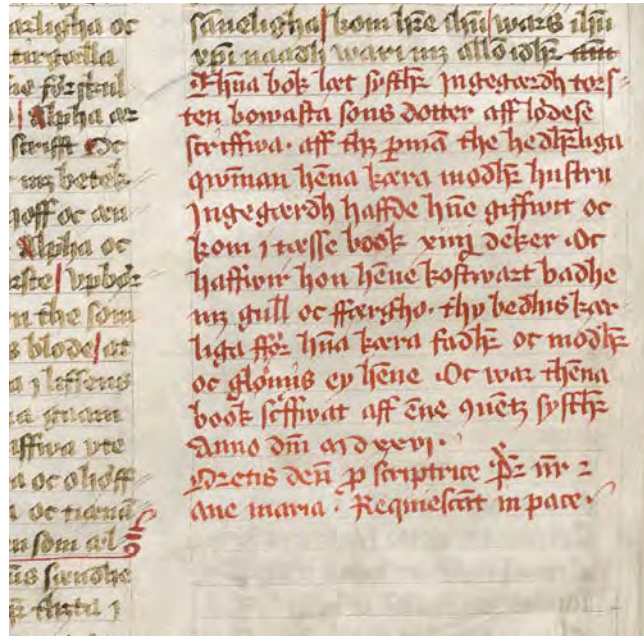 arligha oc
ne förskul
Alpha ær
scrifft Oc
mz betek
hoff oc æn
Alpha oc
rste vpbör
n the som
s blode at
a j liffens
affwa vte
a oc ohoff
oc nærua
n som al
rs sændhe
saneligha kom hrē ihū wars ihū
xpi naadh wari mz allō idhr am̄
Thn̄a bok læt systh̄r Ingegærdh tors
ten bowasta sons dotter aff lödese
scriffwa. aff thz p̄mā the hedhr̄liga
qwīnan hēna kæra modhr̄ hustru
Ingegærdh haffde hn̄e giffwit oc
kom j tæsse book xiiij deker. Oc
haffwir hon hēne kostwart badhe
mz gull oc færgho. thy bedhis kær
liga ffor hn̄a kæra fadhr̄ oc modhr̄
oc glömis ey hēne. Oc war thēna
book scffwat aff ēne 9uētz systh̄r
Anno dm̄ mdxxvi.
Oretis den̄ p scriptrice Pr̄ nr̄ 2
aue maria. Requiescāt in pace.